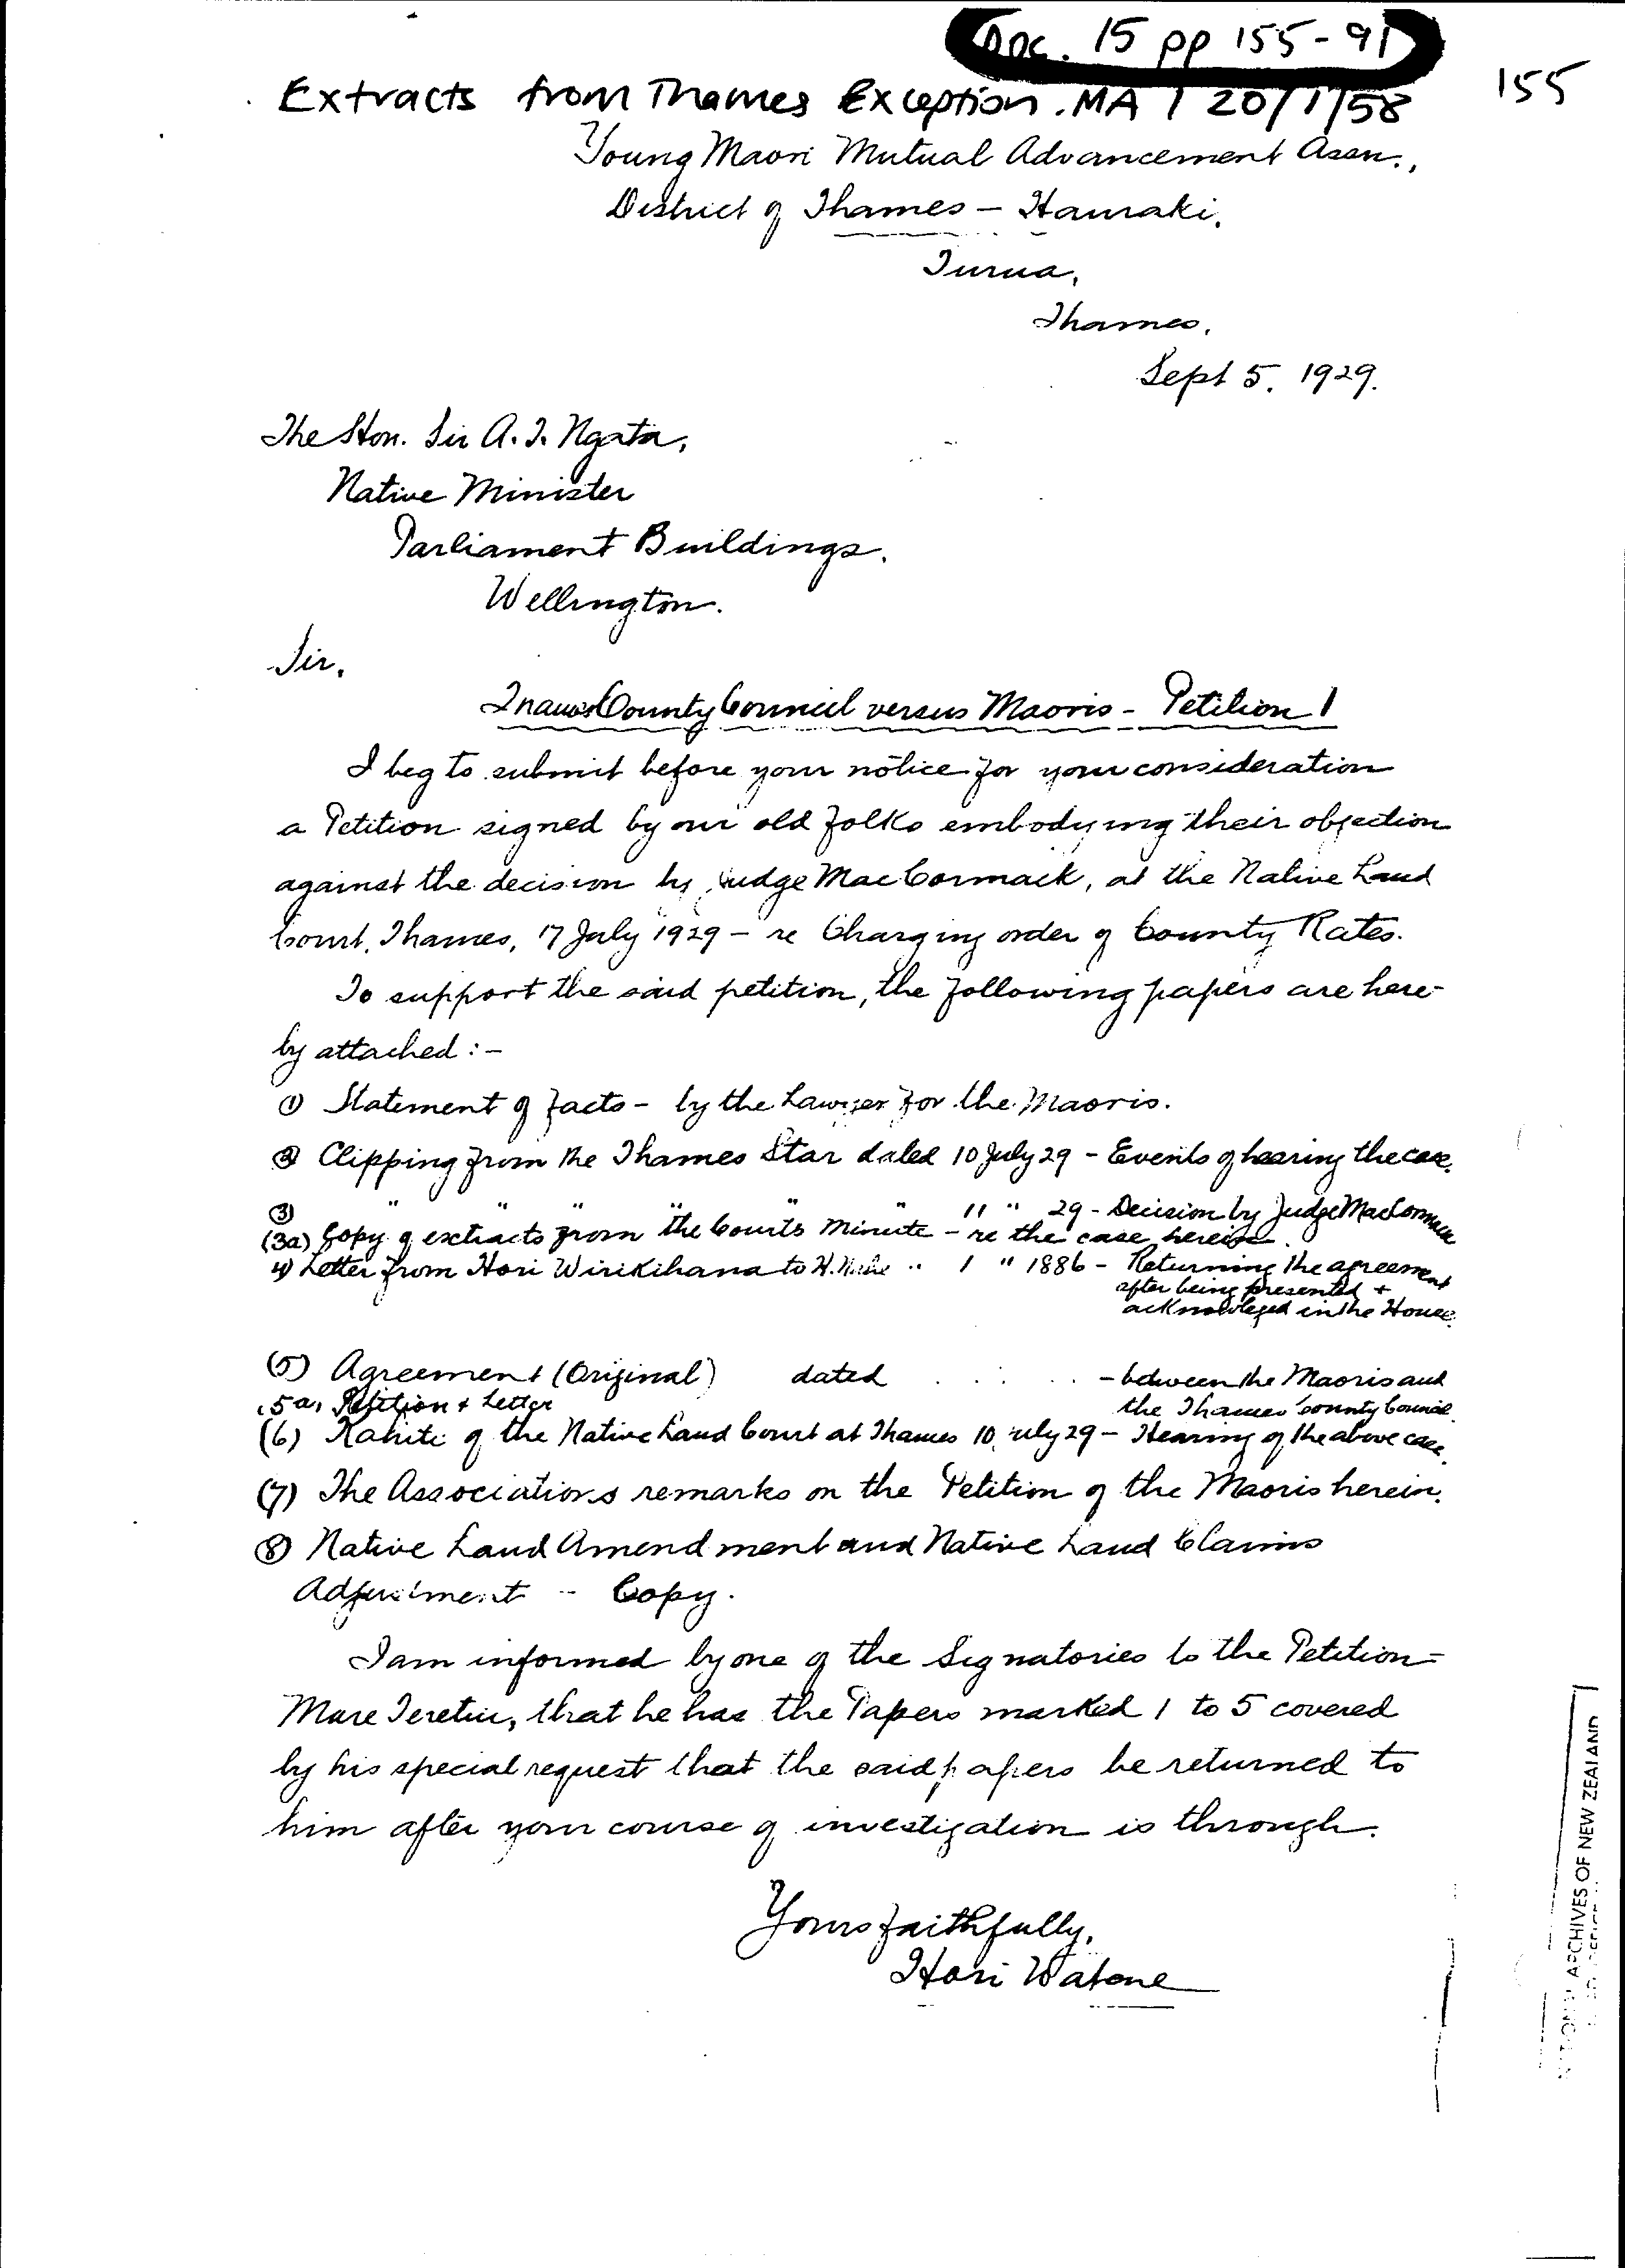 Doc. 15 pp 155-91
155
Extracts from Thames Exception. MA 1 20/1/58
Young Maori Mutual Advancement Assn.,
District of Thames - Hauraki.
Turua,
Thames.
Sept 5. 1929.
The Hon. Sir A. T. Ngata,
Native Minister
Parliament Buildings.
Wellington.
Sir,
Thames County Council versus Maoris - Petition 1
I beg to submit before your notice for your consideration
a Petition signed by our old folks embodying their objection
against the decision by Judge MacCormack, at the Native Land
Court, Thames, 17 July 1929 - re Charging order of County Rates.
To support the said petition, the following papers are here-
by attached :-
(1) Statement of facts - by the Lawyer for the Maoris.
(2) Clipping from the Thames Star dated 10 July 29 - Events of hearing the case.
(3) " " " " " " 11 " 29 - Decision by Judge MacCormack
(3a) Copy of extracts from the Courts Minute - re the case herein.
4) Letter from Hori Wirikihana to H. " 1 " 1886 - Returning the agreement
after being presented +
acknowleged in the House.
(5) Agreement (Original) dated . . . . . - between the Maoris and
the Thames County Council.
(5a) Petition + Letter
(6) Kahiti of the Native Land Court at Thames 10 July 29 - Hearing of the above case.
(7) The Associations remarks on the Petition of the Maoris herein.
(8) Native Land Amendment and Native Land Claims
Adjustment - Copy.
I am informed by one of the Signatories to the Petition =
Mare Teretiu, that he has the Papers marked 1 to 5 covered
by his special request that the said papers be returned to
him after your course of investigation is through.
Yours faithfully,
Hori Watene
ARCHIVES OF NEW ZEALAND